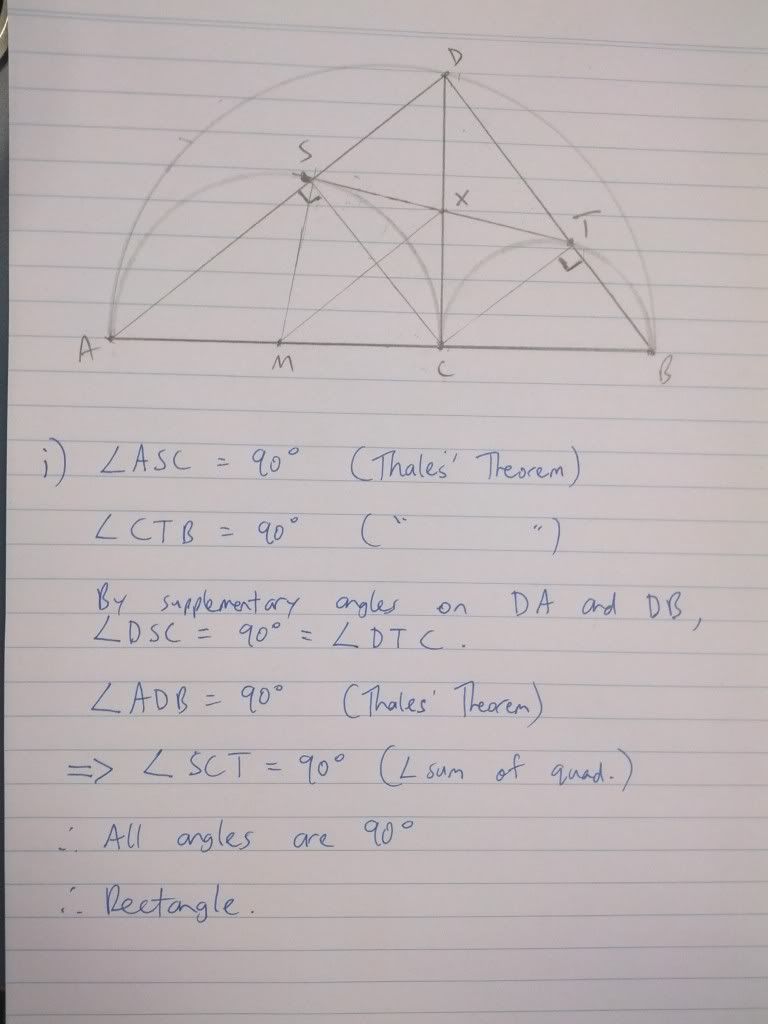 D
S
X
T
A
M
C
B
i) ∠ASC = 90° (Thales' Theorem)
∠CTB = 90° ( " " )
By supplementary angles on DA and DB,
∠DSC = 90° = ∠DTC.
∠ADB = 90° (Thales' Theorem)
=> ∠SCT = 90° (∠ sum of quad.)
∴ All angles are 90°
∴ Rectangle.